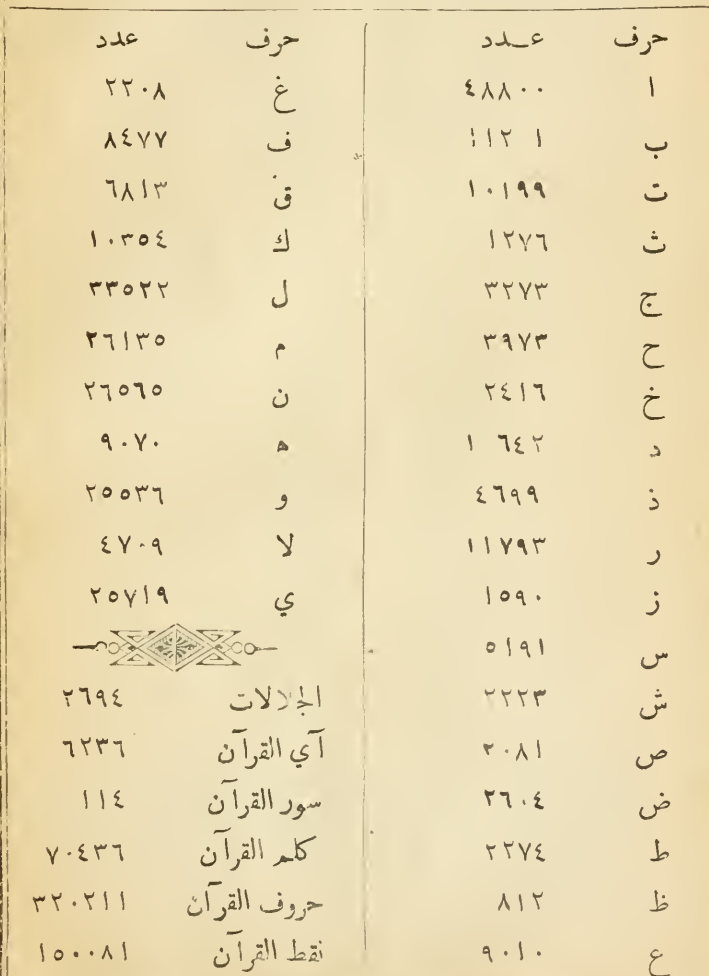 حرف عدد
ا ٤٨٨٠٠
ب
ت ١٠١٩٩
ث ١٢٧٦
ج ٣٢٧٣
ح ٣٩٧٣
خ ٢٤١٦
د ١ ٦٤٢
ذ ٤٦٩٩
ر ١١٧٩٣
ز ١٥٩٠
س ٥١٩١
ش ٢٢٢٣
ص ٢٠٨١
ض ٢٦٠٤
ط ٢٢٧٤
ظ ٨١٢
ع ٩٠١٠
حرف عدد
غ ٢٢٠٨
ف ٨٤٧٧
ق ٦٨١٣
ك ١٠٣٥٤
ل ٣٣٥٢٢
م ٢٦١٣٥
ن ٢٦٥٦٥
ه ٩٠٧٠
و ٢٥٥٣٦
لا ٤٧٠٩
ي ٢٥٧١٩
الجلالات ٢٦٩٤
آي القرآن ٦٢٣٦
سور القرآن ١١٤
كلم القرآن ٧٠٤٣٦
حروف القرآن ٣٢٠٢١١
نقط القرآن ١٥٠٠٨١